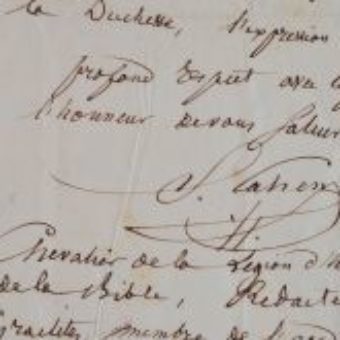 la Duchesse, l'expression
profond respect avec
l'honneur de vous saluer
S. Cahen
Chevalier de la Légion d'h
de la Bible, Rédacte
israélites, membre de